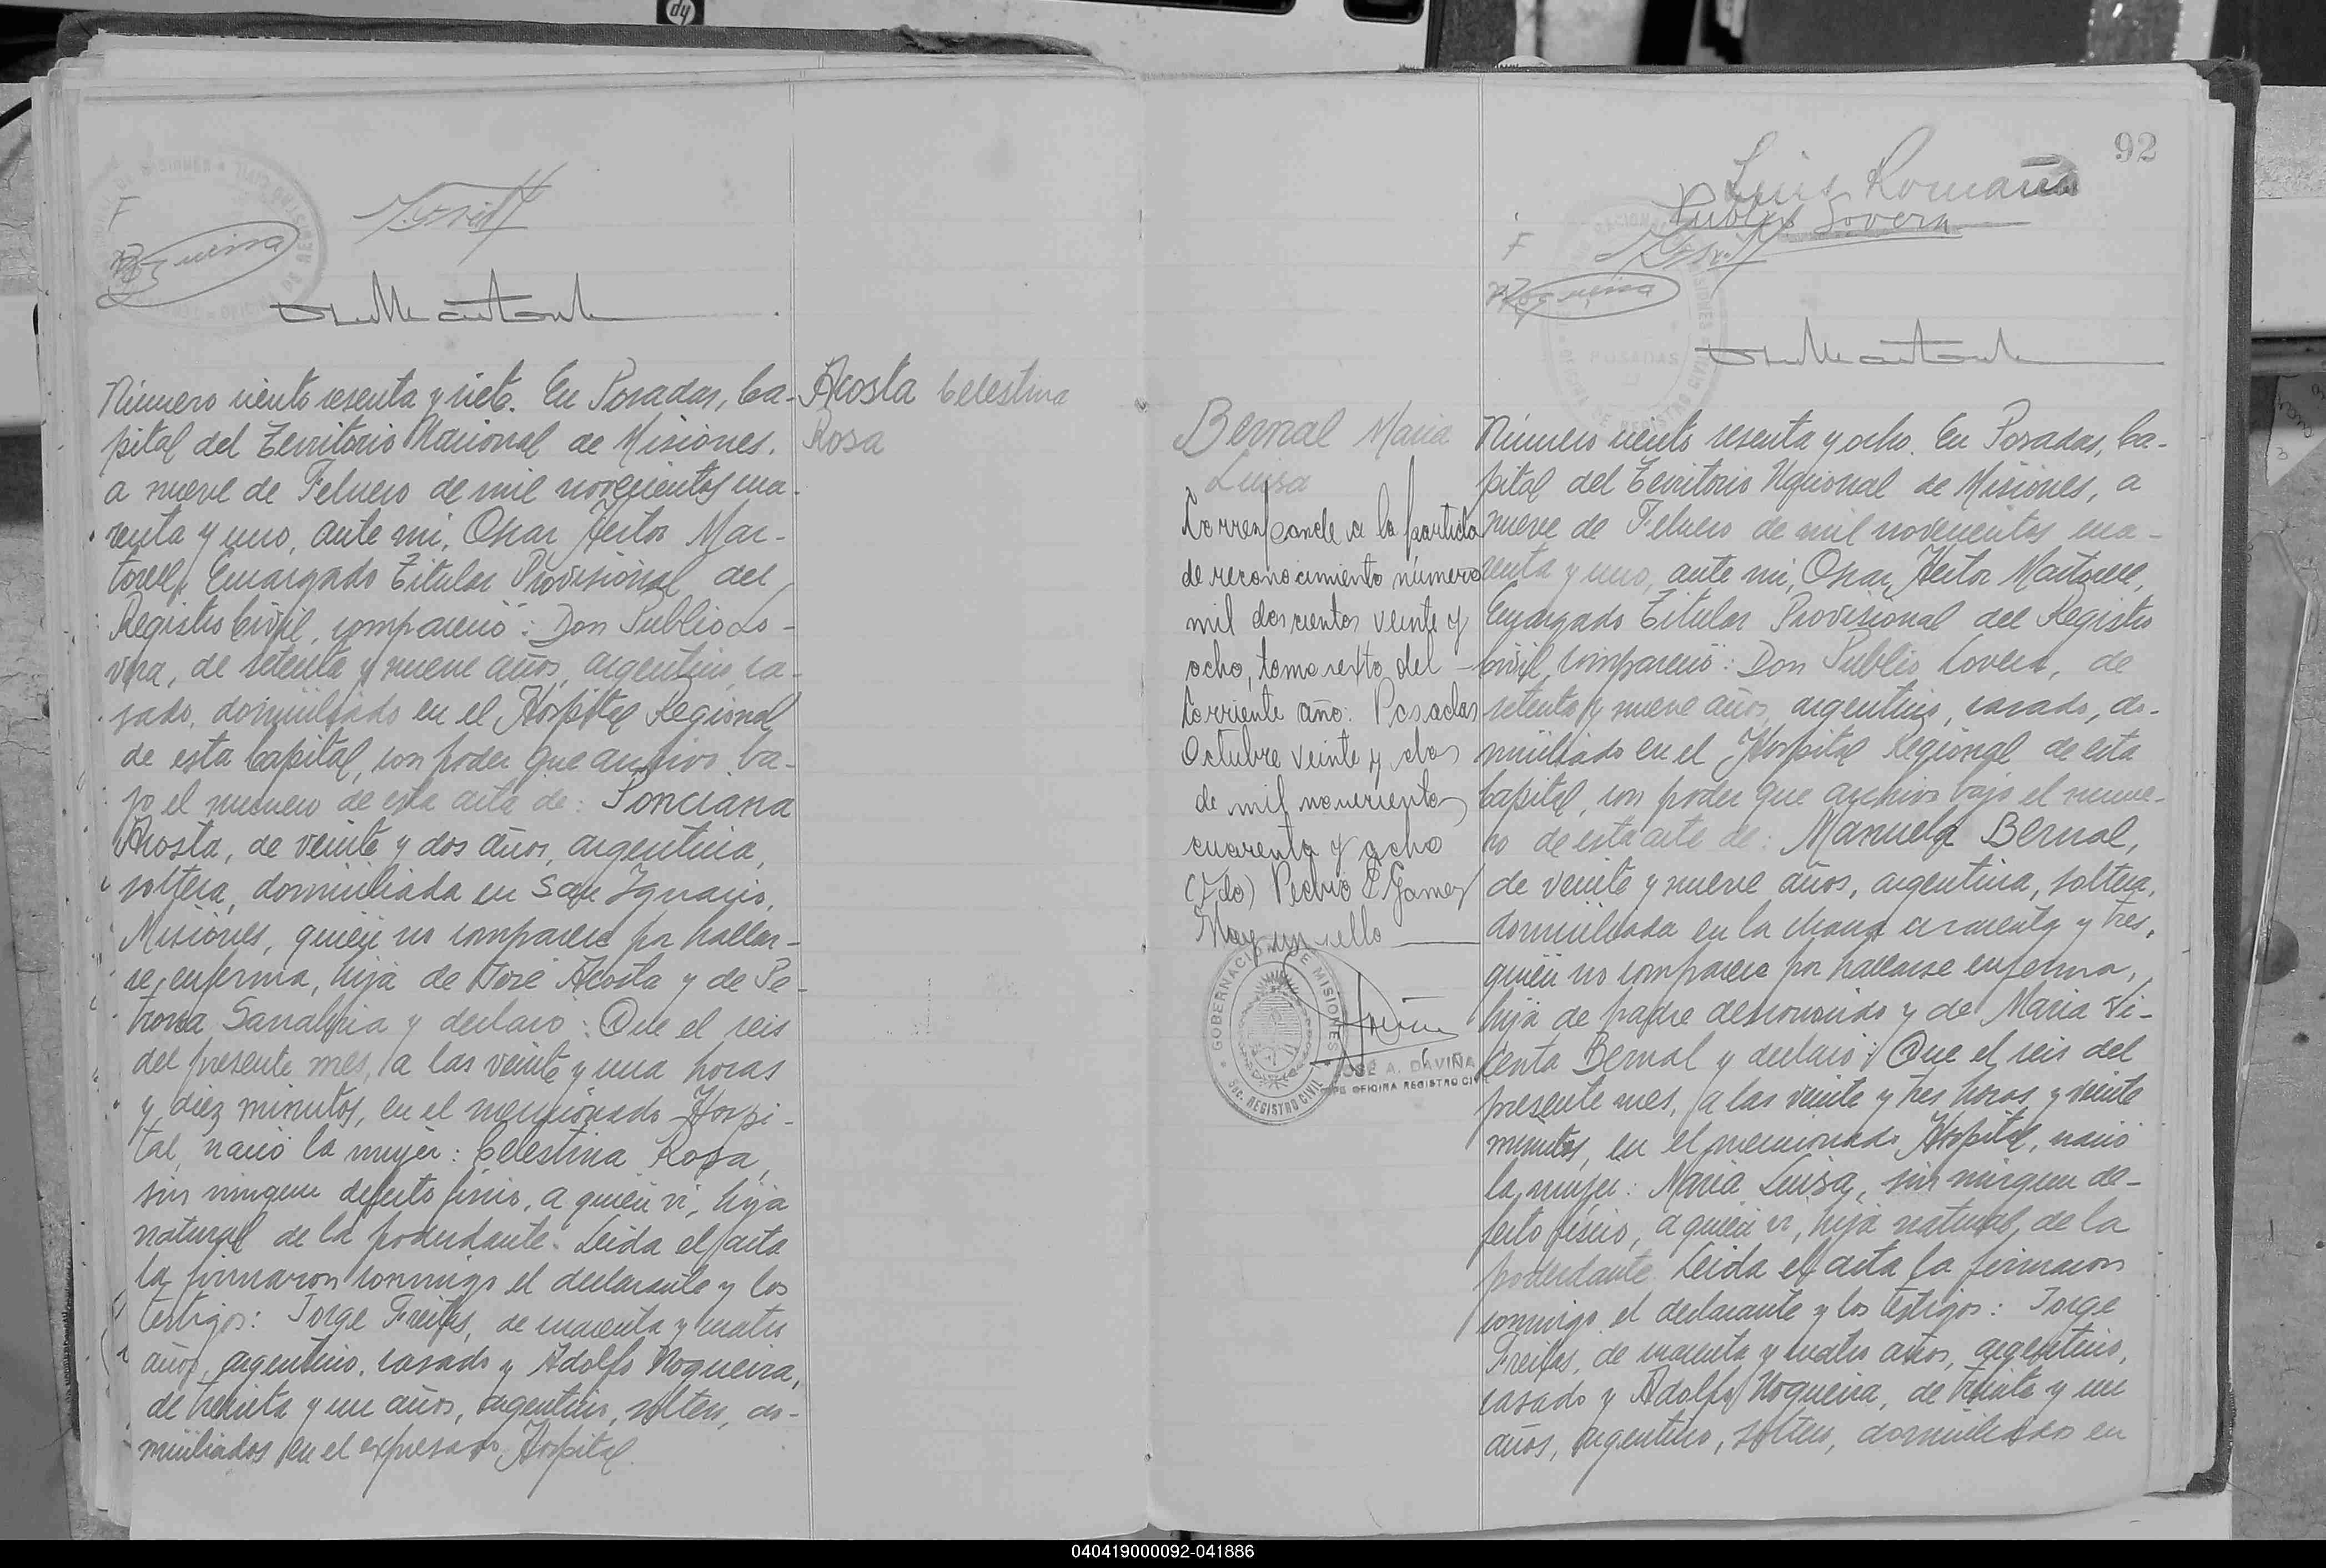 F
Número ciento sesenta y siete. En Posadas, Ca-
pital del Territorio Nacional de Misiones,
a nueve de Febrero de mil novecientos cua-
renta y uno, ante mi, Oscar Hector Mar-
torell, Encargado Titular Provisional del
Registro Civil, compareció: Don Publio Lo-
vera, de setenta y nueve años, argentino, ca-
sado, domiciliado en el Hospital Regional
de esta Capital, con poder que archivo ba-
jo el numero de esta acta de: Ponciana
Acosta, de veinte y dos años, argentina,
soltera, domiciliada en San Ignacio,
Misiones, quién no comparece por hallar-
se enferma, hija de José Acosta y de Pe-
trona Sanabria y declaro: Que el seis
del presente mes, a las veinte y una horas
y diez minutos, en el mencionado Hospi-
tal, nació la mujer: Celestina Rosa,
sin ningun defecto físico, a quién vi, hija
natural de la poderdante. Leida el acta
la firmaron conmigo el declarante y los
testigos: Jorge Freitas, de cuarenta y cuatro
años, argentino, casado y Adolfo Nogueira,
de treinta y un años, argentino, soltero, do-
miciliados en el expresado Hospital.
Acosta Celestina
Rosa
92
Luis Romaña
Publio Lovera
F
POSADAS
Bernal Maria
Luisa
Corresponde a la partida
de reconocimiento número
mil doscientos veinte y
ocho, tomo sexto del
corriente año. Posadas
Octubre veinte y dos
de mil novecientos
cuarenta y ocho
(Fdo) Pedro E. Gomez
Hay un sello
GOBERNACION DE MISIONES
SEC. REGISTRO CIVIL
JOSÉ A. DAVIÑA
JEFE OFICINA REGISTRO CIVIL
Número ciento sesenta y ocho. En Posadas, Ca-
pital del Territorio Nacional de Misiones, a
nueve de Febrero de mil novecientos cua-
renta y uno, ante mi, Oscar Hector Martorell,
Encargado Titular Provisional del Registro
Civil, compareció: Don Publio Lovera, de
setenta y nueve años, argentino, casado, do-
miciliado en el Hospital Regional de esta
Capital, con poder que archivo bajo el nume-
ro de esta acta de: Manuela Bernal,
de veinte y nueve años, argentina, soltera,
domiciliada en la chacra cincuenta y tres,
quién no comparece por hallarse enferma,
hija de padre desconocido y de Maria Vi-
centa Bernal y declaro: Que el seis del
presente mes, a las veinte y tres horas y veinte
minutos, en el mencionado Hospital, nació
la mujer: Maria Luisa, sin ningun de-
fecto físico, a quién vi, hija natural de la
poderdante. Leida el acta la firmaron
conmigo el declarante y los testigos: Jorge
Freitas, de cuarenta y cuatro años, argentino,
casado y Adolfo Nogueira, de treinta y un
años, argentino, soltero, domiciliados en
040419000092-041886